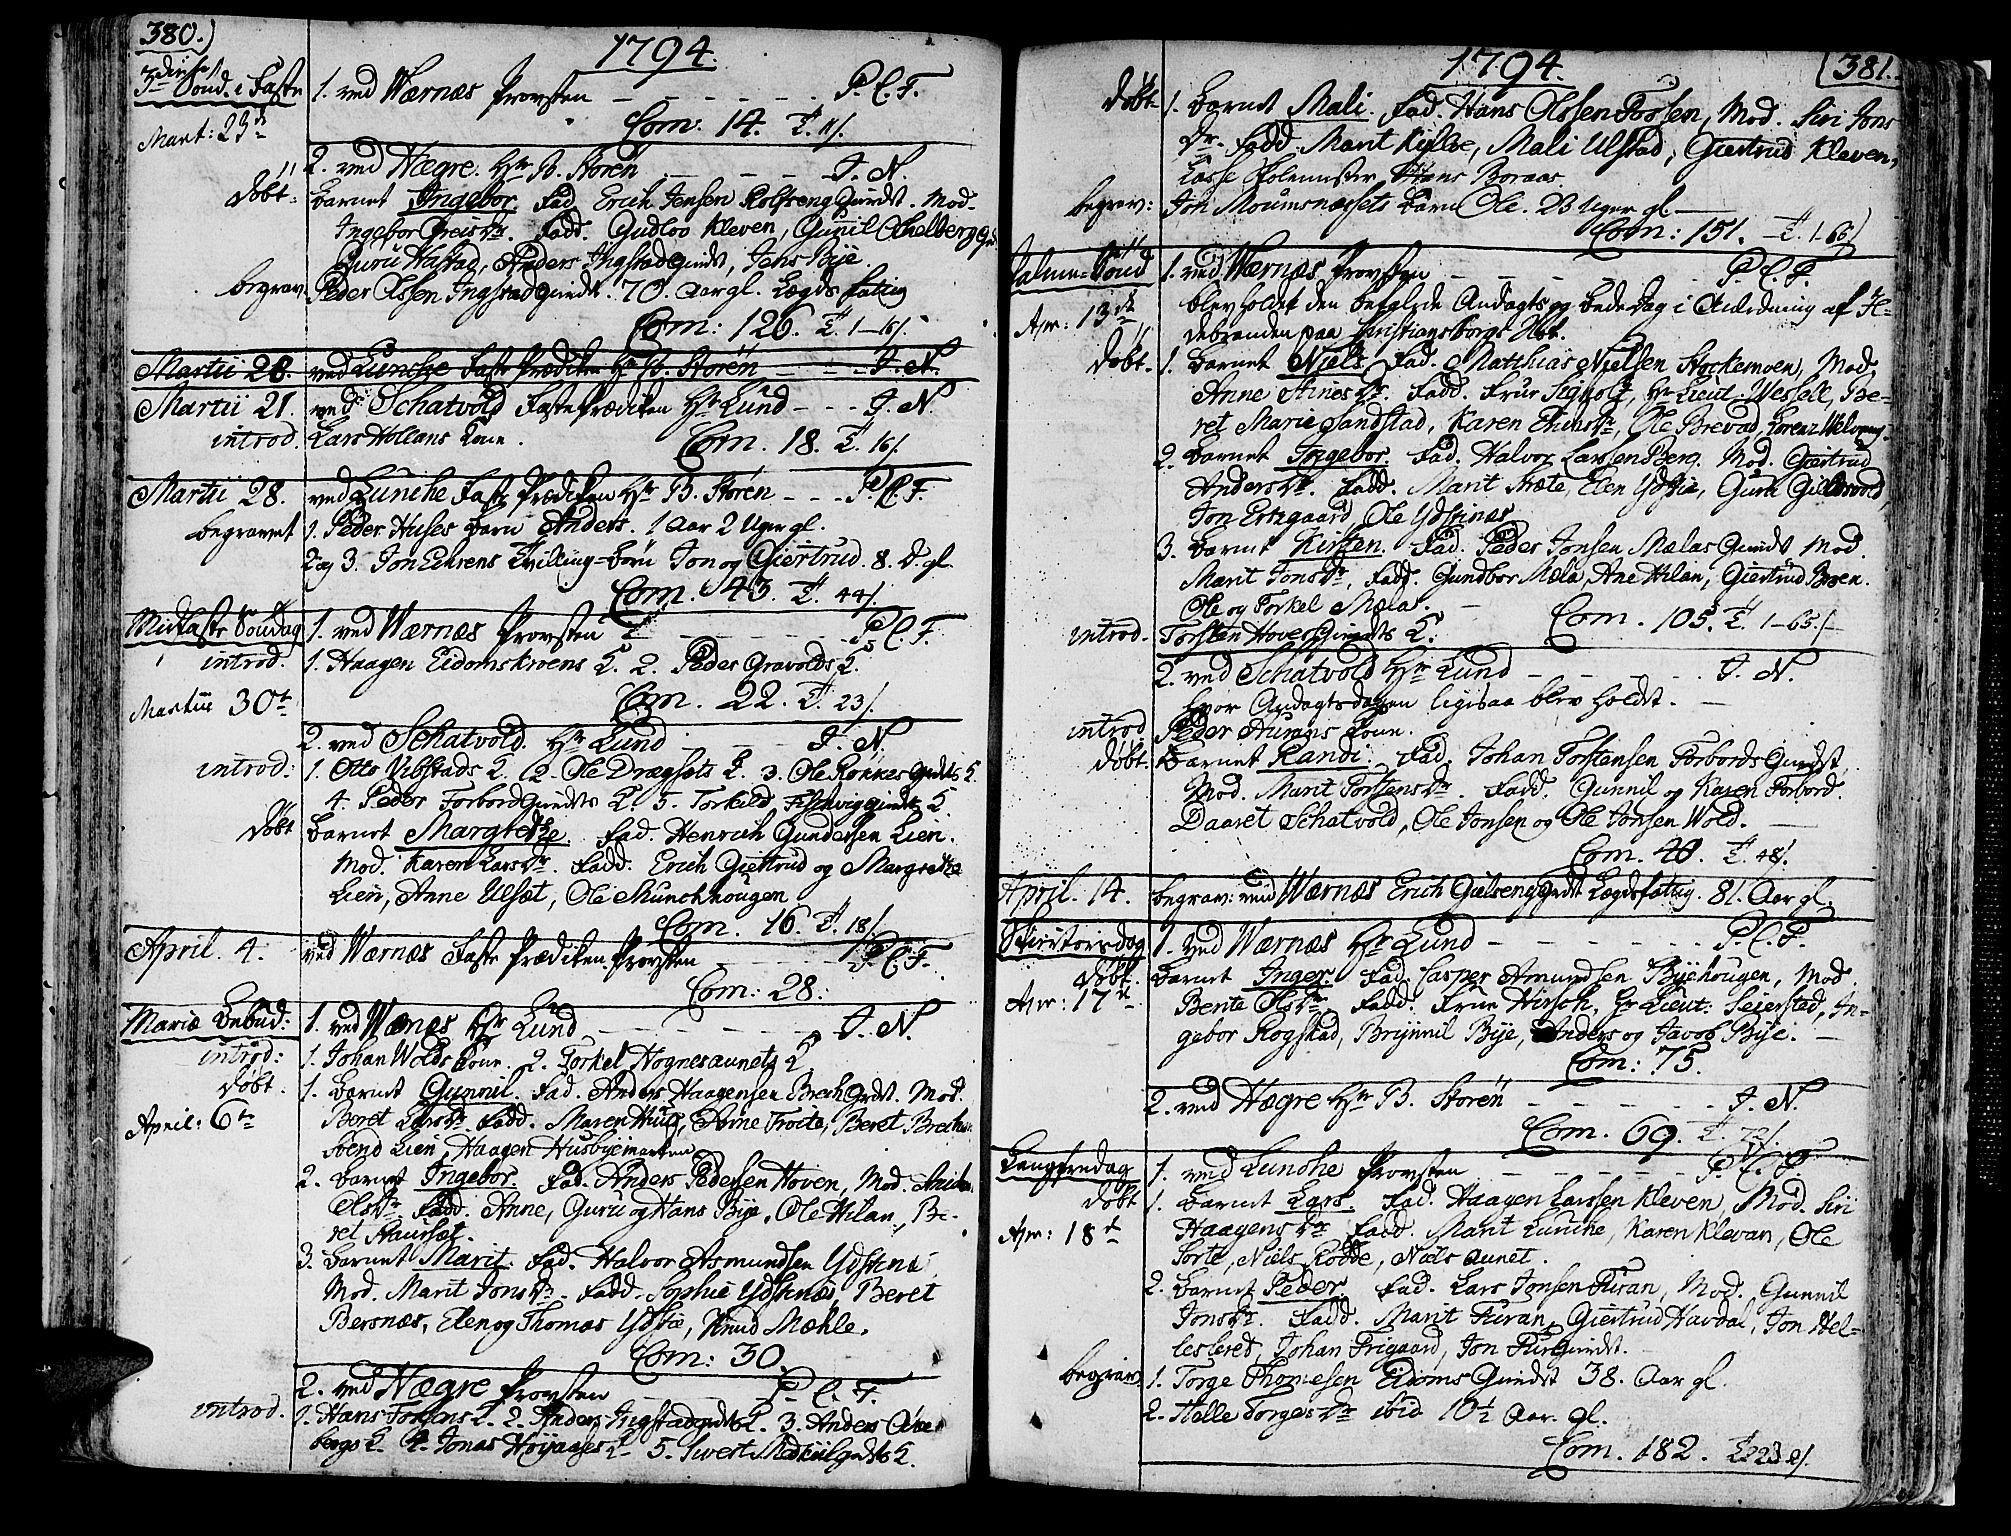 380.)
1794.
3die Sønd. i Faste
1. ved Wærnæs Provsten — — — P. C. F.
Mart: 23d
Com. 14.
2. ved Hægre. Hr B. Storën — — — J. N.
døbt.
Barnet Ingebor. Fad. Erich Jensen Rolfseng Gmdt. Mod.
Ingebor Greisdr. Fadd. Gudlov Kleven, Gunil
Guru Hastad, Anders Ingstad gmdt, Jens Bye.
begrav.
Peder Olssen Ingstad gmdt. 70. Aar gl. Lægds fattig
Com: 126.
Martii 28. ved Lunche Faste Prædiken Hr B. Storën — — J. N.
Martii 21. ved Schatvold Faste Prædiken Hr Lund — — J. N.
introd.
Lars Hollans Kone.
Com. 18.
Martii 28. ved Lunche Faste Prædiken Hr B. Storën — — P. C. F.
begravet
1. Peder Huses Barn Anders. 1 Aar 2 Uger gl.
2 og 3. Jon Tvilling-børn Jon og Giertrud. 8. D. gl.
Com. 43. 44/.
Midfaste Søndag
1. ved Wærnæs Provsten — — — P. C. F.
introd.
1. Haagen Eidomskroens K. 2. Peder Gravolds K.
Martii 30t
Com. 22. 23/.
2. ved Schatvold. Hr Lund — — — J. N.
introd:
1. Otto Vibstads K. 2. Ole Drægsets K. 3. Ole Røkkes gmdts K.
4. Peder Forbord gmdts K. 5. Torkild gmdts K.
døbt
Barnet Margrethe Fad. Henrich Gundersen Lien.
Mod. Karen Larsdr. Fadd. Erich Giertrud og Margrethe
Lien, Anne Ulsæt, Ole Munchhougen
Com. 16. 18/.
April. 4. ved Wærnæs Faste Prædiken Provsten — — P. C. F.
Com: 28.
Mariæ Bebud:
1. ved Wærnæs Hr Lund — — — J. N.
introd:
1. Johan Wolds Kone. 2. Torkel Hognesaunets K
døbt.
1. Barnet Gunnil. Fad. Anders Haagensen Brech Gmdt. Mod.
April: 6te
Beret Larsdr. Fadd. Maren Hug, Anne Troite, Beret
Svend Lien, Haagen Husbyemarken
2. Barnet Ingebor. Fad. Anders Pedersen Hoven, Mod.
Olsdr. Fadd. Anne, Guru og Hans Bye, Ole Hilan, Be-
ret
3. Barnet Marit. Fad. Halvor Asmundsen Ydstines
Mod. Marit Jonsdr. Fadd. Sophie Ydstines, Beret
Bersnæs, Elen og Thomas Ydstie, Knud Mæhle.
Com: 30.
2. ved Hægre Provsten — — P. C. F.
introd.
1. Hans K. 2. Anders Ingstad gmdts K. 3. Anders
bergs K. 4. Jonas K. 5. Sivert gmdts K.
1794.
(381.
døbt.
1. Barnet Mali. Fad. Hans Olssen Fossen, Mod. Siri Jons
dr. Fadd. Marit Kylloe, Mali Ulstad, Giertrud Kleven,
Lasse Skolemester, Hans Boraas.
begrav:
Jon Moumsnæssets Barn Ole. 23 Uger gl.
Com: 151.
Palme-Sønd
1. ved Wærnæs Provsten — — — P. C. F.
Apr: 13de
blev holdt den befalede Andagts og Bededag i Anledning af Il-
debranden paa Christiansborgs Slot.
døbt.
1. Barnet Niels. Fad. Matthias Nielsen Stockemoen, Mod.
Anne Stinesdr. Fadd. Frue Sigholt, Hr Lieut. Wessell, Be-
ret Marie Sandstad, Karen Olsdr, Ole Brevad,
2. Barnet Ingebor. Fad. Halvor Larssen Berg. Mod. Giertrud
Andersdr. Fadd. Marit Træte, Elen Ydstie, Guru
Jon Ertzgaard, Ole Ydstines.
3. Barnet Kirsten. Fad. Peder Jonsen Mælas Gmdt Mod.
Marit Jonsdr, Fadd. Gundbor Mæla, Ane Hilan, Giertrud Broen.
Ole og Torkel Mælas.
Com. 105.
introd.
Torsten Hoves Gmdts K.
2. ved Schatvold Hr Lund — — — J. N.
hvor Andagtsdagen ligesaa blev holdt.
introd
Peder Kone.
døbt.
Barnet Randi. Fad. Johan Torstensen Forbords Gmdt,
Mod. Marit Torstensdr. Fadd. Gunnil og Karen Forbord.
Daaret Schatvold, Ole Jonsen og Ole Jonsen Wold.
Com. 40. 48/.
April. 14. begrav: ved Wærnæs Erich Gielseng gmdt Lægdsfattig. 81. Aar gl.
Skiertorsdag
1. ved Wærnæs Hr Lund — — — P. C. F.
døbt.
Barnet Inger. Fad. Casper Amundsen Byehougen, Mod.
Apr: 17de
Bente Olsdr. Fadd. Frue Hirsch, Hr Lieut: Seierstad, In-
gebor Rogstad, Brynnil Bye, Anders og Jacob Bye.
Com: 75.
2. ved Hægre Hr B. Storën — — — J. N.
Com. 69.
Langfredag
1. ved Lunche Provsten — — — P. C. F.
døbt
1. Barnet Lars. Fad. Haagen Larssen Kleven, Mod. Siri
Apr: 18t
Haagensdr. Fadd. Marit Lunche, Karen Klevan, Ole
Forte, Niels Rodde, Niels Aunet.
2. Barnet Peder. Fad. Lars Jonsen Furan, Mod. Gunnil
Jonsdr. Fadd. Marit Furan, Giertrud Havdal, Jon Hel-
lesleret, Johan Trigaard, Jon Fur Gmdt.
begrav.
1. Torge Thomesen Eidoms Gmdt 38. Aar gl.
2. Helle Torgersdr ibid 10½ Aar. gl.
Com. 182.